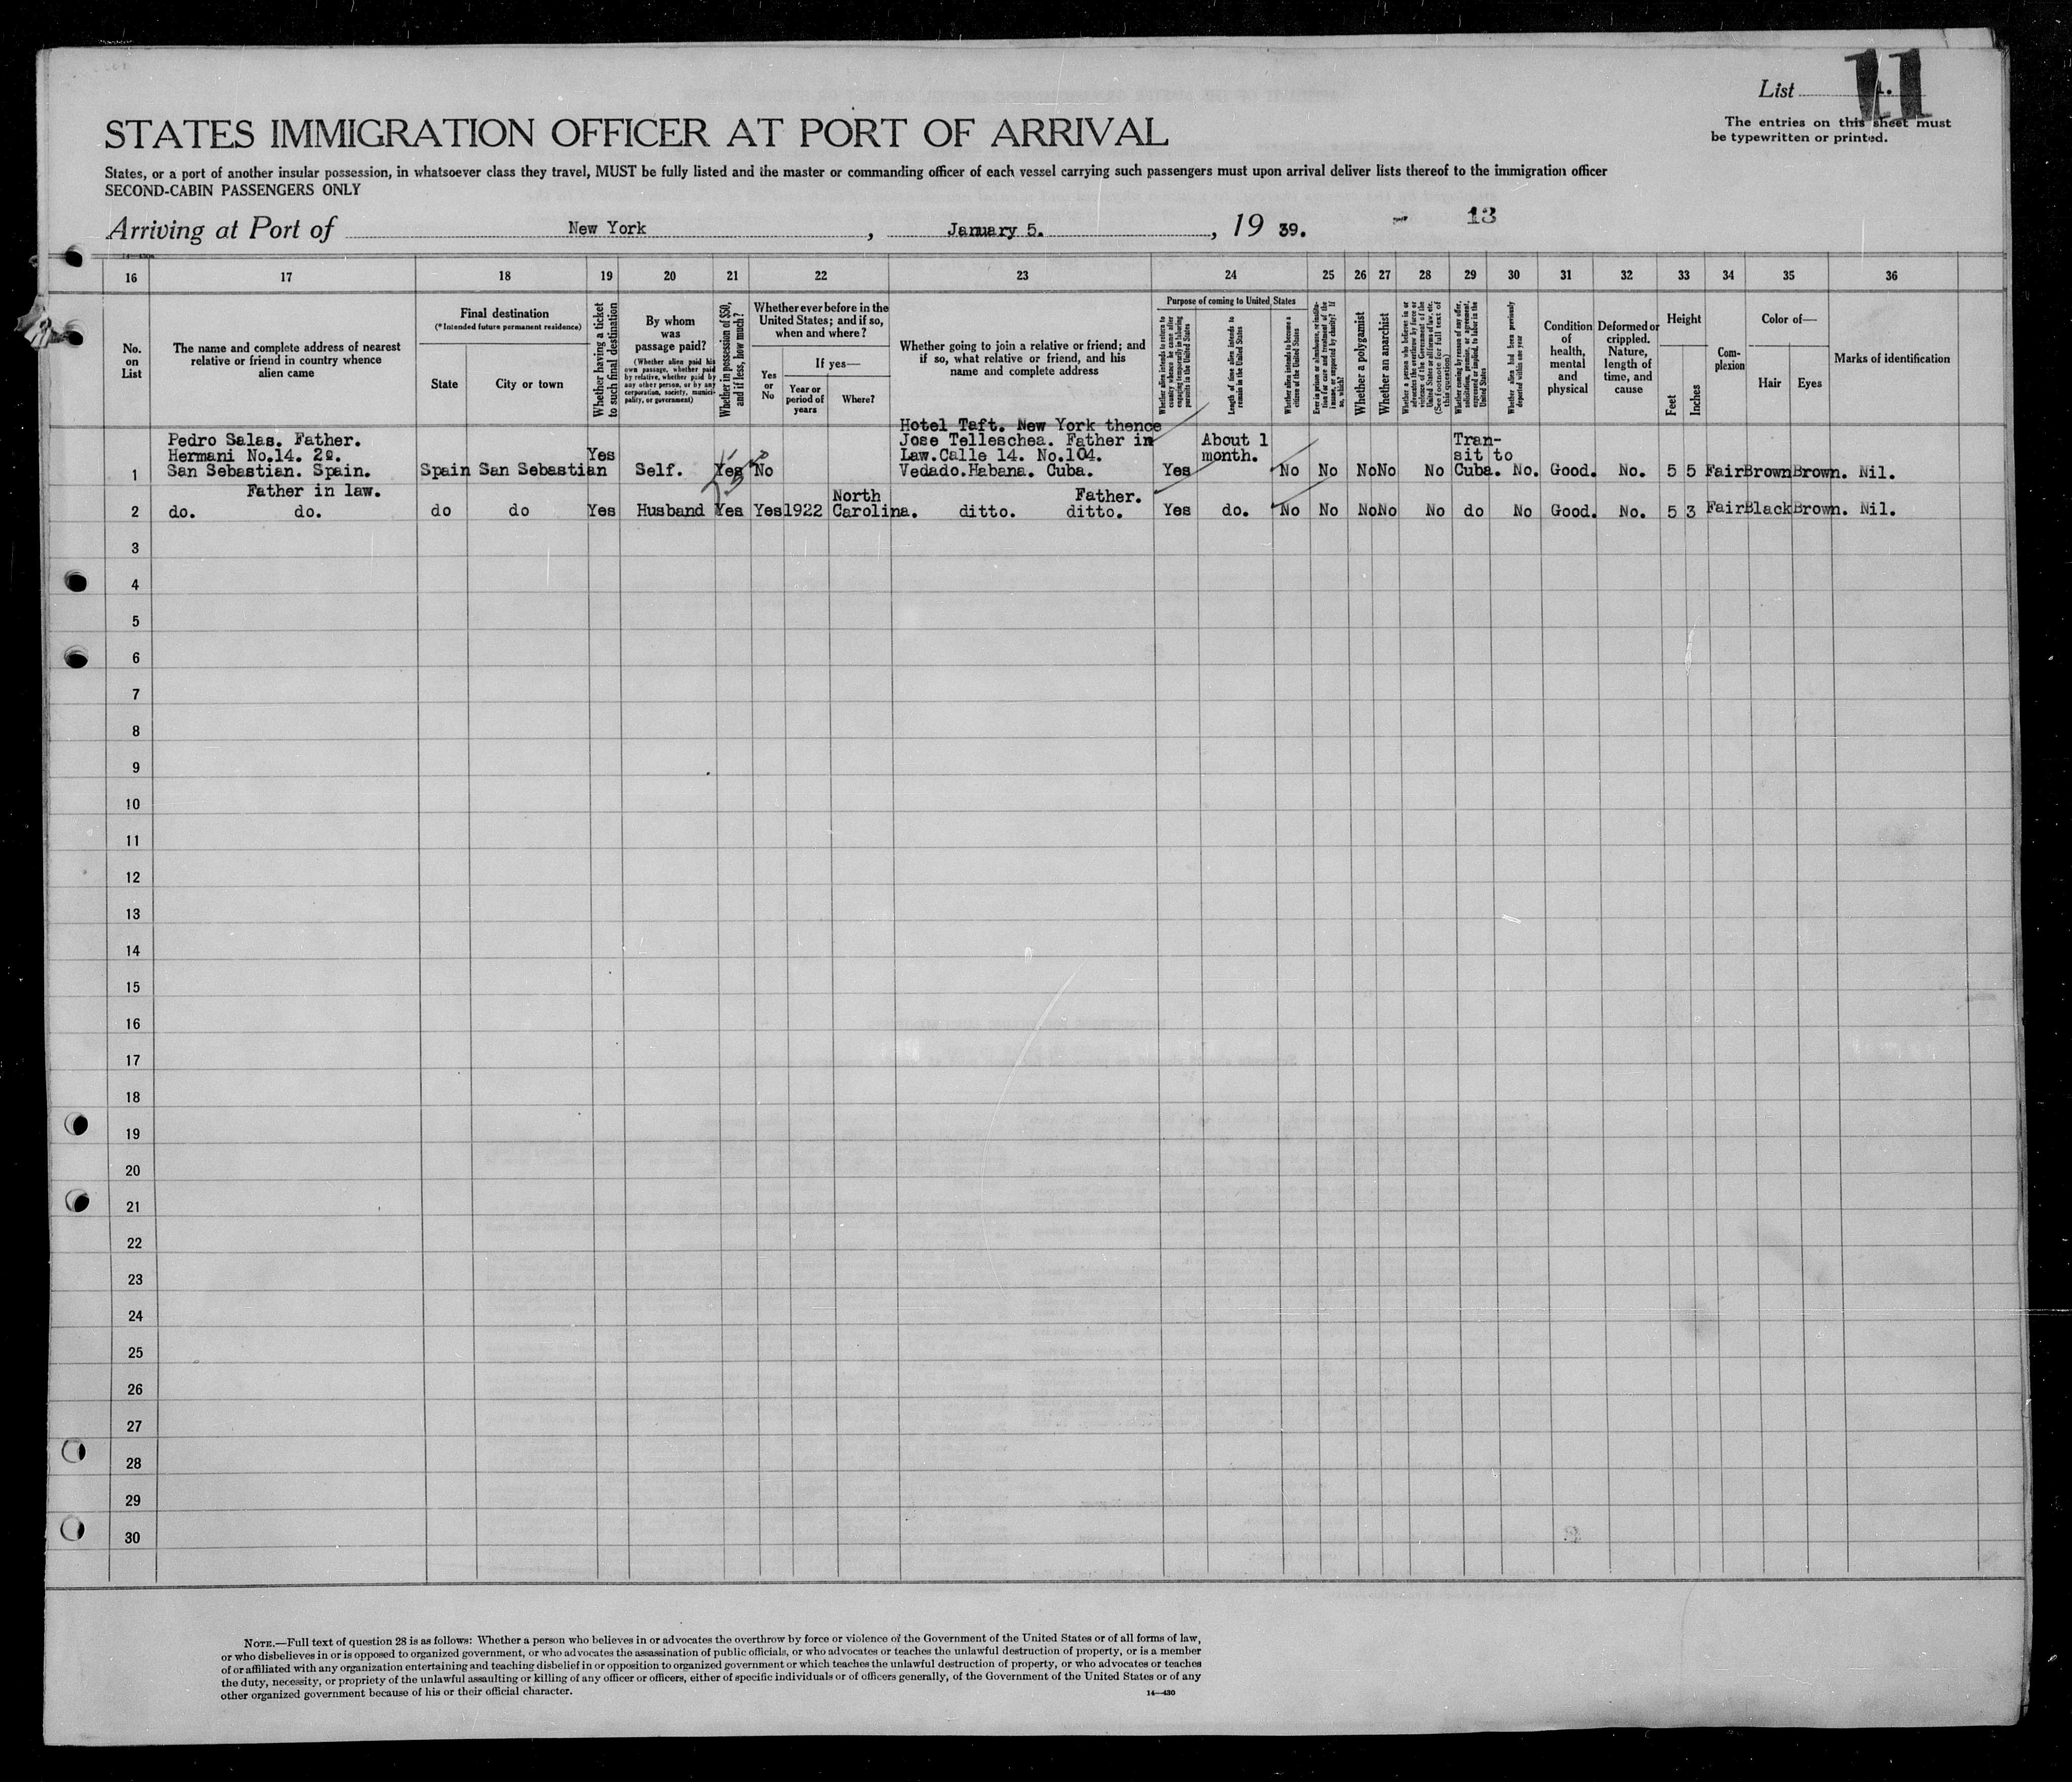 List 4.
11
The entries on this sheet must
be typewritten or printed.
STATES IMMIGRATION OFFICER AT PORT OF ARRIVAL
States, or a port of another insular possession, in whatsoever class they travel, MUST be fully listed and the master or commanding officer of each vessel carrying such passengers must upon arrival deliver lists thereof to the immigration officer
SECOND-CABIN PASSENGERS ONLY
Arriving at Port of New York, January 5., 19 39. 13
16 17 18 19 20 21 22 23 24 25 26 27 28 29 30 31 32 33 34 35 36
No. on List
The name and complete address of nearest
relative or friend in country whence
alien came
Final destination
(*Intended future permanent residence)
State
City or town
Whether having a ticket
to such final destination
By whom
was
passage paid?
(Whether alien paid his
own passage, whether paid
by relative, whether paid by
any other person, or by any
corporation, society, munici-
pality, or government)
Whether in possession of $50,
and if less, how much?
Whether ever before in the
United States; and if so,
when and where?
Yes
or
No
If yes—
Year or
period of
years
Where?
Whether going to join a relative or friend; and
if so, what relative or friend, and his
name and complete address
Purpose of coming to United States
Whether alien intends to return to
country whence he came after
engaging temporarily in laboring
pursuits in the United States
Length of time alien intends to
remain in the United States
Whether alien intends to become a
citizen of the United States
Ever in prison or almshouse, or institu-
tion for care and treatment of the
insane, or supported by charity? If
so, which?
Whether a polygamist
Whether an anarchist
Whether a person who believes in or
advocates the overthrow by force or
violence of the Government of the
United States or all forms of law, etc.
(See footnote for full text of
this question)
Whether coming by reason of any offer,
solicitation, promise, or agreement,
expressed or implied, to labor in the
United States
Whether alien had been previously
deported within one year
Condition
of
health,
mental
and
physical
Deformed or
crippled.
Nature,
length of
time, and
cause
Height
Feet
Inches
Com-
plexion
Color of—
Hair
Eyes
Marks of identification
Hotel Taft. New York thence
Pedro Salas. Father. Jose Telleschea. Father in About 1 Tran-
Hermani No.14. 2º. Yes Law. Calle 14. No.104. month. sit to
1 San Sebastian. Spain. Spain San Sebastian Self. Yes No Vedado.Habana. Cuba. Yes No No No No No Cuba. No. Good. No. 5 5 Fair Brown Brown. Nil.
Father in law. North Father.
2 do. do. do do Yes Husband Yes Yes 1922 Carolina. ditto. ditto. Yes do. No No No No No do No Good. No. 5 3 Fair Black Brown. Nil.
3
4
5
6
7
8
9
10
11
12
13
14
15
16
17
18
19
20
21
22
23
24
25
26
27
28
29
30
NOTE.—Full text of question 28 is as follows: Whether a person who believes in or advocates the overthrow by force or violence of the Government of the United States or of all forms of law,
or who disbelieves in or is opposed to organized government, or who advocates the assassination of public officials, or who advocates or teaches the unlawful destruction of property, or is a member
of or affiliated with any organization entertaining and teaching disbelief in or opposition to organized government or which teaches the unlawful destruction of property, or who advocates or teaches
the duty, necessity, or propriety of the unlawful assaulting or killing of any officer or officers, either of specific individuals or of officers generally, of the Government of the United States or of any
other organized government because of his or their official character.
14—430